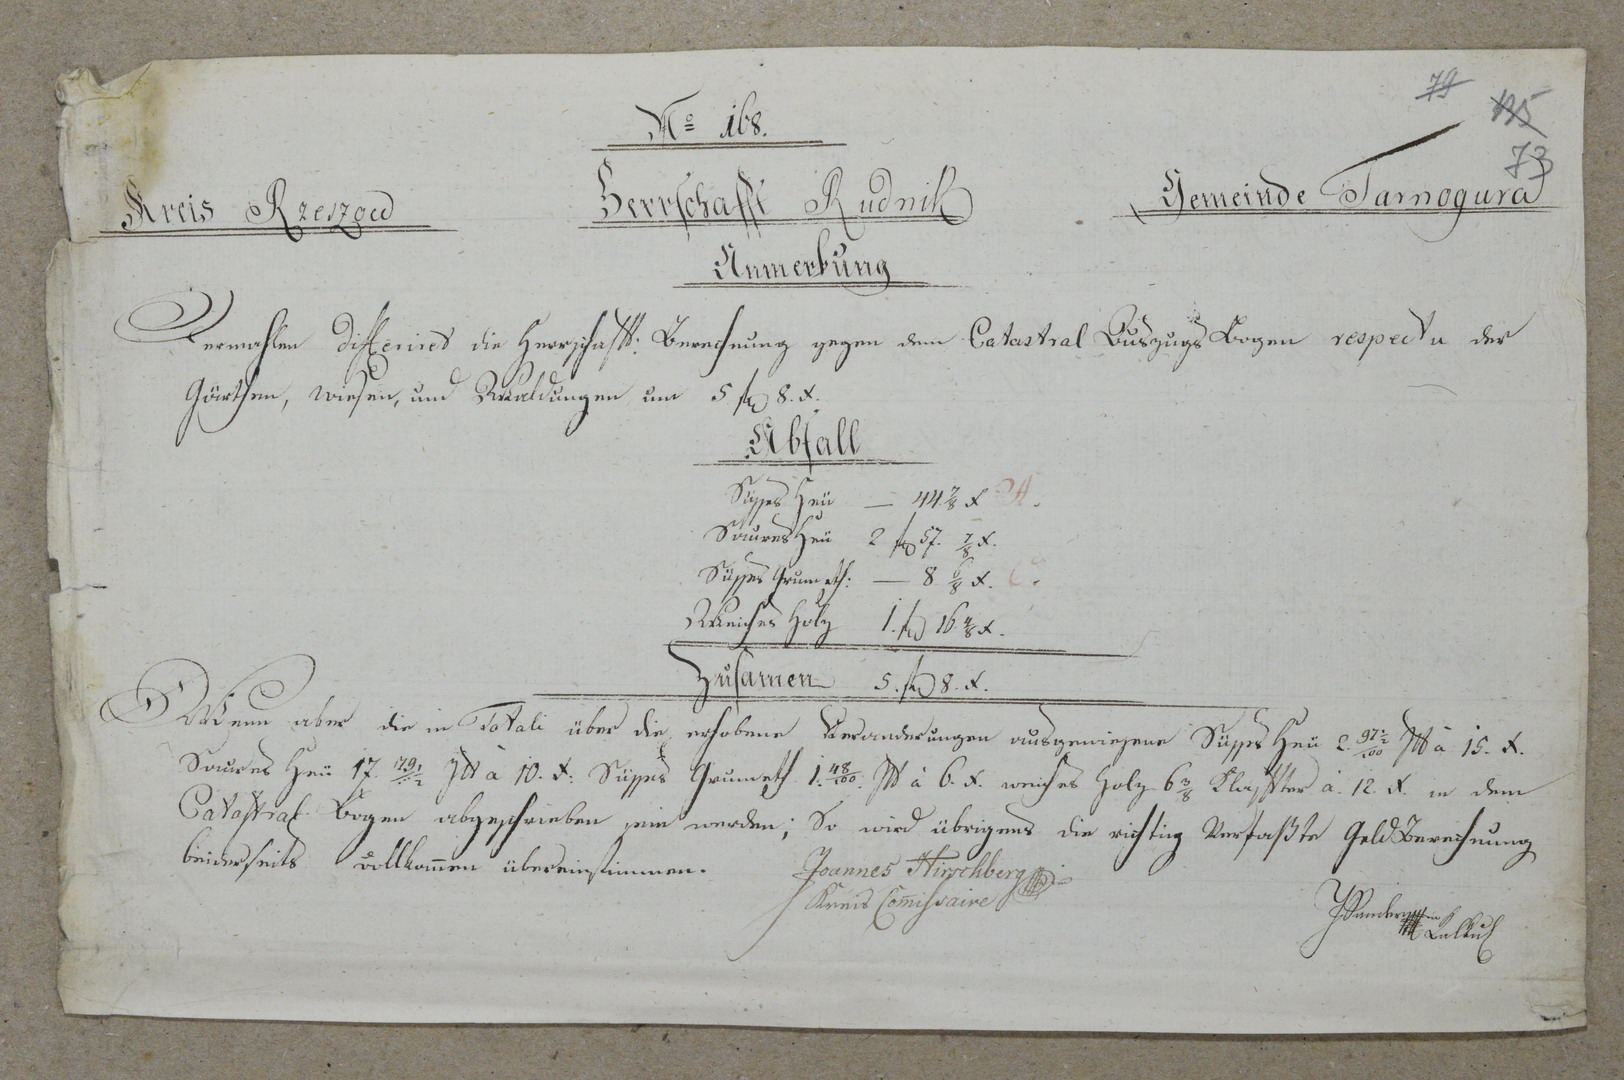 79
115
73
No 168.
Kreis Rzeszow Herrschafft Rudnik Gemeinde Tarnogura
Anmerkung
Vermahlen differiret die Herrschaftl: Berechnung gegen dem Catastral Auszugs Bogen respectu der
Gärthen, Wiesen, und Waldungen um 5 fl 8. x.
Abfall
Süsses Heü — 44 7/8 x
Saures Heü 2 fl 57. 7/8 x.
Süsses Grumeth: — 8 6/8 x.
Weiches Holz 1. fl 16 4/8 x.
Zusamen 5. fl 8. x.
Wenn aber die in Totali über die erhobene Veranderungen ausgewiesene Süsses Heü 2. 97½/100 à 15. x.
Saures Heü 17. à 10. x: Süsses Grumeth 1. 48/100: à 6. x. weiches Holz 6 3/8 Klaffter à. 12. x. in dem
Catastral Bogen abgeschrieben sein werden; So wird übrigens die richtig Verfaßte Geld Berechnung
beiderseits vollkommen übereinstimmen.
Joannes Hirschberg
Kreis Commissaire